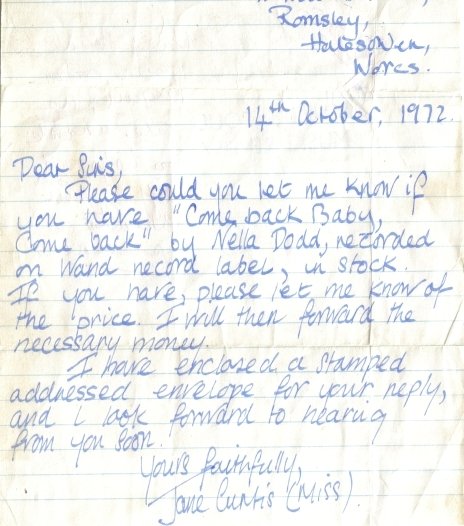 Romsley,
Halesowen,
Worcs.
14th October, 1972.
Dear Sirs,
Please could you let me know if
you have "Come back Baby,
Come back" by Nella Dodd, recorded
on Wand record label, in stock.
If you have, please let me know of
the price. I will then forward the
necessary money.
I have enclosed a stamped
addressed envelope for your reply,
and I look forward to hearing
from you soon.
Yours faithfully,
Jane Curtis (Miss).